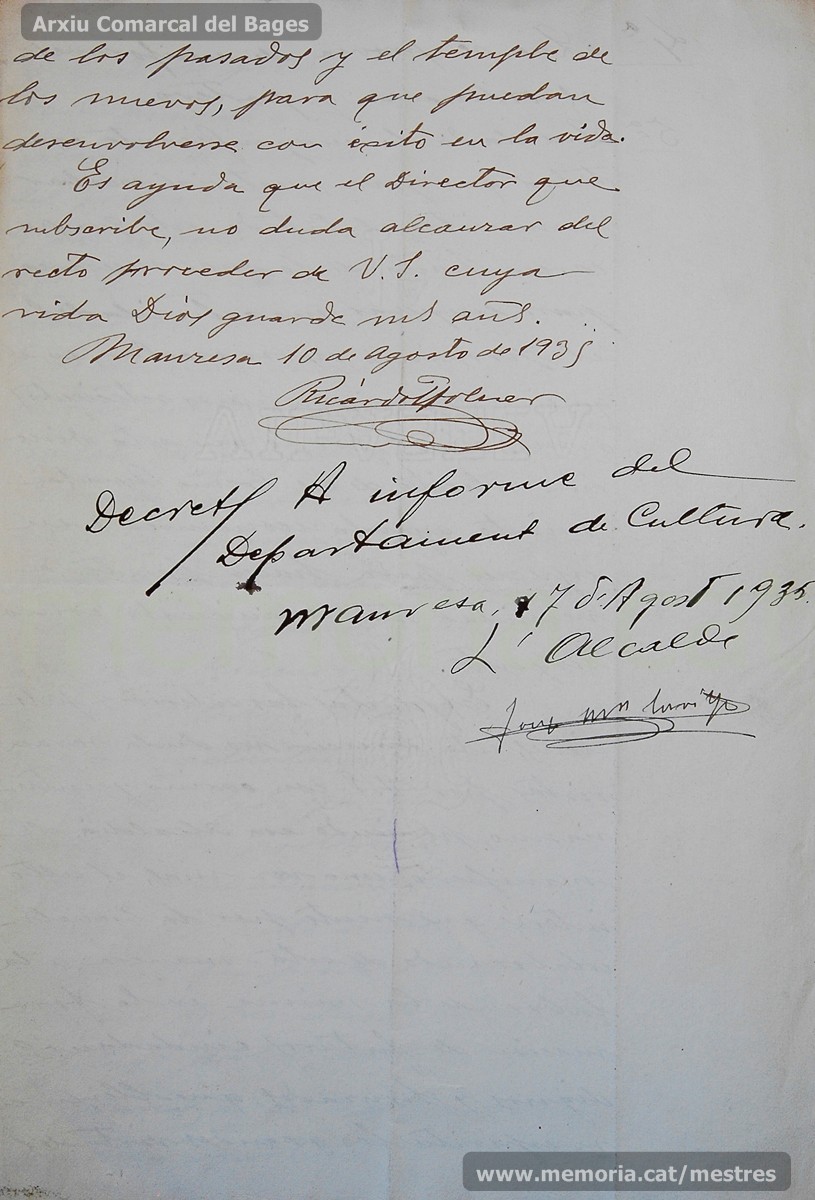 Arxiu Comarcal del Bages
de los pasados y el temple de
los nuevos, para que puedan
desenvolverse con éxito en la vida.
Es ayuda que el Director que
subscribe, no duda alcanzar del
recto proceder de V.S. cuya
vida Dios guarde ms añs.
Manresa 10 de Agosto de 1935
Ricardo
Decret/ A informe del
Departament de Cultura.
Manresa, 17 d'Agost 1935.
L'Alcalde
www.memoria.cat/mestres